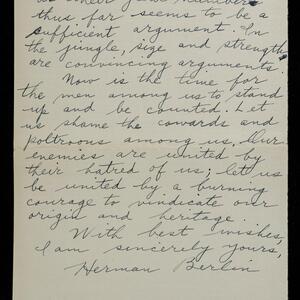 thus far seems to be a
sufficient argument. In
the jungle, size and strength
are convincing arguments.
Now is the time for
the men among us to stand
up and be counted. Let
us shame the cowards and
poltroons among us. Our
enemies are united by
their hatred of us; let us
be united by a burning
courage to vindicate our
origin and heritage.
With best wishes,
I am sincerely yours,
Herman Berlin